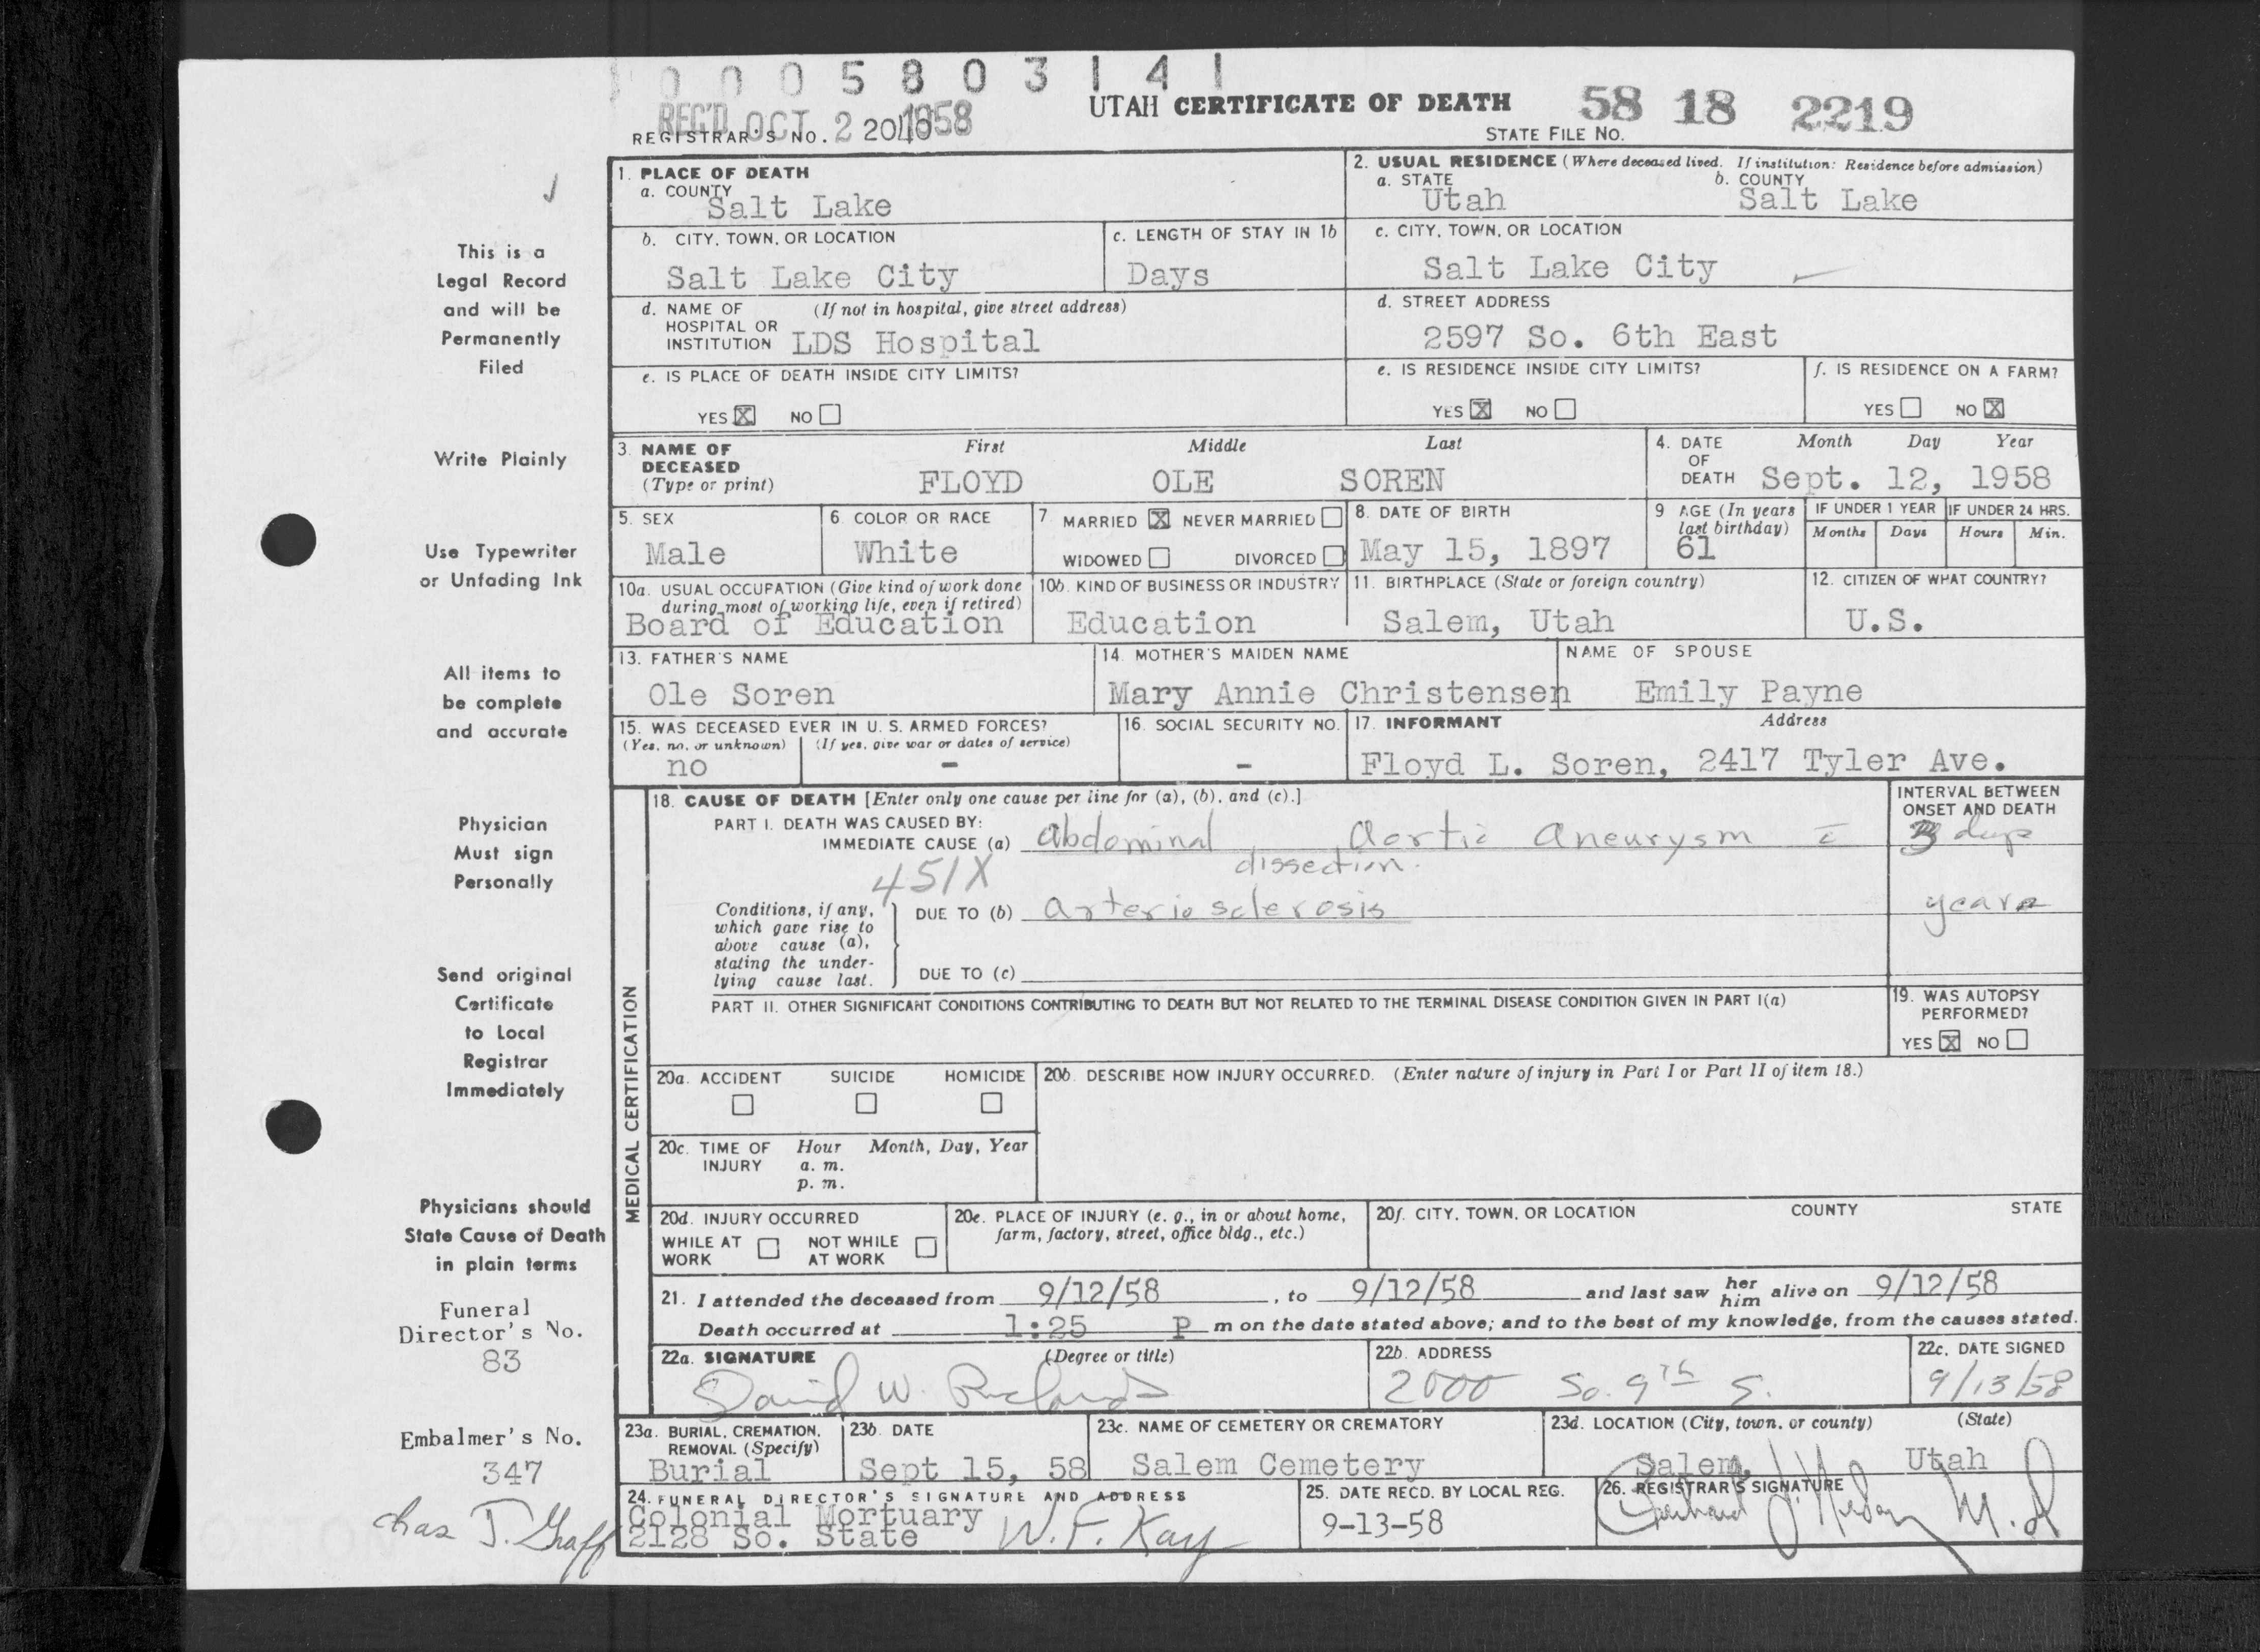 0 0 0 5 8 0 3 1 4 1
REC'D OCT 2 1958
UTAH CERTIFICATE OF DEATH
58 18 2219
REGISTRAR'S NO. 2010
STATE FILE NO.
This is a
Legal Record
and will be
Permanently
Filed
Write Plainly
Use Typewriter
or Unfading Ink
All items to
be complete
and accurate
Physician
Must sign
Personally
Send original
Certificate
to Local
Registrar
Immediately
Physicians should
State Cause of Death
in plain terms
Funeral
Director's No.
83
Embalmer's No.
347
Chas J. Graff
1. PLACE OF DEATH
a. COUNTY
Salt Lake
2. USUAL RESIDENCE (Where deceased lived. If institution: Residence before admission)
a. STATE b. COUNTY
Utah Salt Lake
b. CITY, TOWN, OR LOCATION
Salt Lake City
c. LENGTH OF STAY IN 1b
Days
c. CITY, TOWN, OR LOCATION
Salt Lake City
d. NAME OF (If not in hospital, give street address)
HOSPITAL OR
INSTITUTION LDS Hospital
d. STREET ADDRESS
2597 So. 6th East
e. IS PLACE OF DEATH INSIDE CITY LIMITS?
YES X NO
e. IS RESIDENCE INSIDE CITY LIMITS?
YES X NO
f. IS RESIDENCE ON A FARM?
YES NO X
3. NAME OF
DECEASED
(Type or print)
First Middle Last
FLOYD OLE SOREN
4. DATE
OF
DEATH
Month Day Year
Sept. 12, 1958
5. SEX
Male
6. COLOR OR RACE
White
7. MARRIED X NEVER MARRIED
WIDOWED DIVORCED
8. DATE OF BIRTH
May 15, 1897
9 AGE (In years
last birthday)
61
IF UNDER 1 YEAR
Months Days
IF UNDER 24 HRS.
Hours Min.
10a. USUAL OCCUPATION (Give kind of work done
during most of working life, even if retired)
Board of Education
10b. KIND OF BUSINESS OR INDUSTRY
Education
11. BIRTHPLACE (State or foreign country)
Salem, Utah
12. CITIZEN OF WHAT COUNTRY?
U.S.
13. FATHER'S NAME
Ole Soren
14. MOTHER'S MAIDEN NAME
Mary Annie Christensen
NAME OF SPOUSE
Emily Payne
15. WAS DECEASED EVER IN U. S. ARMED FORCES?
(Yes, no, or unknown) (If yes, give war or dates of service)
no -
16. SOCIAL SECURITY NO.
-
17. INFORMANT Address
Floyd L. Soren, 2417 Tyler Ave.
MEDICAL CERTIFICATION
18. CAUSE OF DEATH [Enter only one cause per line for (a), (b), and (c).]
INTERVAL BETWEEN
ONSET AND DEATH
PART I. DEATH WAS CAUSED BY:
IMMEDIATE CAUSE (a) Abdominal Aortic Aneurysm c̄
3 days
dissection.
451X
Conditions, if any,
which gave rise to
above cause (a),
stating the under-
lying cause last.
DUE TO (b) arteriosclerosis
years
DUE TO (c)
PART II. OTHER SIGNIFICANT CONDITIONS CONTRIBUTING TO DEATH BUT NOT RELATED TO THE TERMINAL DISEASE CONDITION GIVEN IN PART I(a)
19. WAS AUTOPSY
PERFORMED?
YES X NO
20a. ACCIDENT SUICIDE HOMICIDE
20b. DESCRIBE HOW INJURY OCCURRED. (Enter nature of injury in Part I or Part II of item 18.)
20c. TIME OF Hour Month, Day, Year
INJURY a. m.
p. m.
20d. INJURY OCCURRED
WHILE AT NOT WHILE
WORK AT WORK
20e. PLACE OF INJURY (e. g., in or about home,
farm, factory, street, office bldg., etc.)
20f. CITY, TOWN, OR LOCATION COUNTY STATE
21. I attended the deceased from 9/12/58, to 9/12/58 and last saw her him alive on 9/12/58
Death occurred at 1:25 P m on the date stated above; and to the best of my knowledge, from the causes stated.
22a. SIGNATURE (Degree or title)
David W.
22b. ADDRESS
2000 So. 9th
22c. DATE SIGNED
9/13/58
23a. BURIAL, CREMATION,
REMOVAL (Specify)
Burial
23b. DATE
Sept 15, 58
23c. NAME OF CEMETERY OR CREMATORY
Salem Cemetery
23d. LOCATION (City, town, or county) (State)
Salem, Utah
24. FUNERAL DIRECTOR'S SIGNATURE AND ADDRESS
Colonial Mortuary
2128 So. State W. F. Kay
25. DATE RECD. BY LOCAL REG.
9-13-58
26. REGISTRAR'S SIGNATURE
M.D